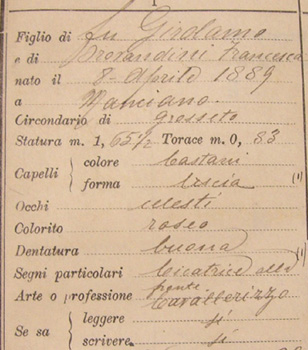 1
Figlio di fu Girolamo
e di Provandini Francesca
nato il 8 Aprile 1889
a Manciano
Circondario di Grosseto
Statura m. 1, 65½ Torace m. 0, 83
Capelli { colore Castani
forma liscia (1)
Occhi celesti
Colorito roseo
Dentatura buona (1)
Segni particolari Cicatrice alla
fronte
Arte o professione Cavallerizzo
Se sa { leggere sì
scrivere sì